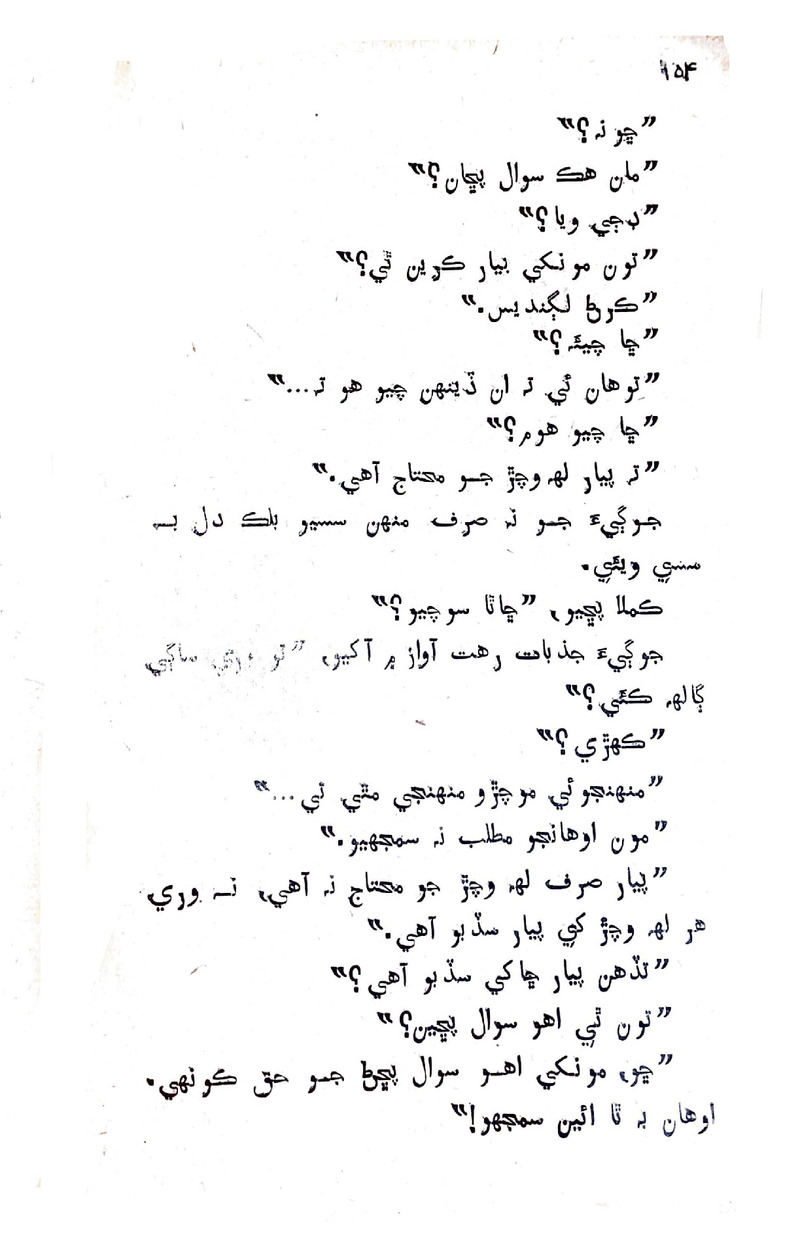 ١٥۴
”ڇو نہ؟“
”مان هڪ سوال پڇان؟“
”ڊڄي ويا؟“
”تون مونکي پيار ڪرين ٿي؟“
”ڪرڻ لڳنديس.“
”ڇا چيئہ؟“
”توهان ئي تہ ان ڏينهن چيو هو تہ...“
”ڇا چيو هوم؟“
”تہ پيار لهہ وچڙ جو محتاج آهي.“
جوڳيءَ جو نہ صرف منهن سسيو بلڪ دل بہ
سسي ويئي.
ڪملا پڇيو، ”ڇا ٿا سوچيو؟“
جوڳيءَ جذبات رهت آواز ۾ آکيو، ”تو وري ساڳي
ڳالهہ ڪئي؟“
”ڪهڙي؟“
”منهنجو ئي موچڙو منهنجي مٿي ئي...“
”مون اوهانجو مطلب نہ سمجهيو.“
”پيار صرف لهہ وچڙ جو محتاج نہ آهي، نہ وري
هر لهہ وچڙ کي پيار سڏبو آهي.“
”تڏهن پيار ڇا کي سڏبو آهي؟“
”تون ٿي اهو سوال پڇين؟“
”ڇو، مونکي اهو سوال پڇڻ جو حق ڪونهي.
اوهان بہ ٿا ائين سمجهو!“